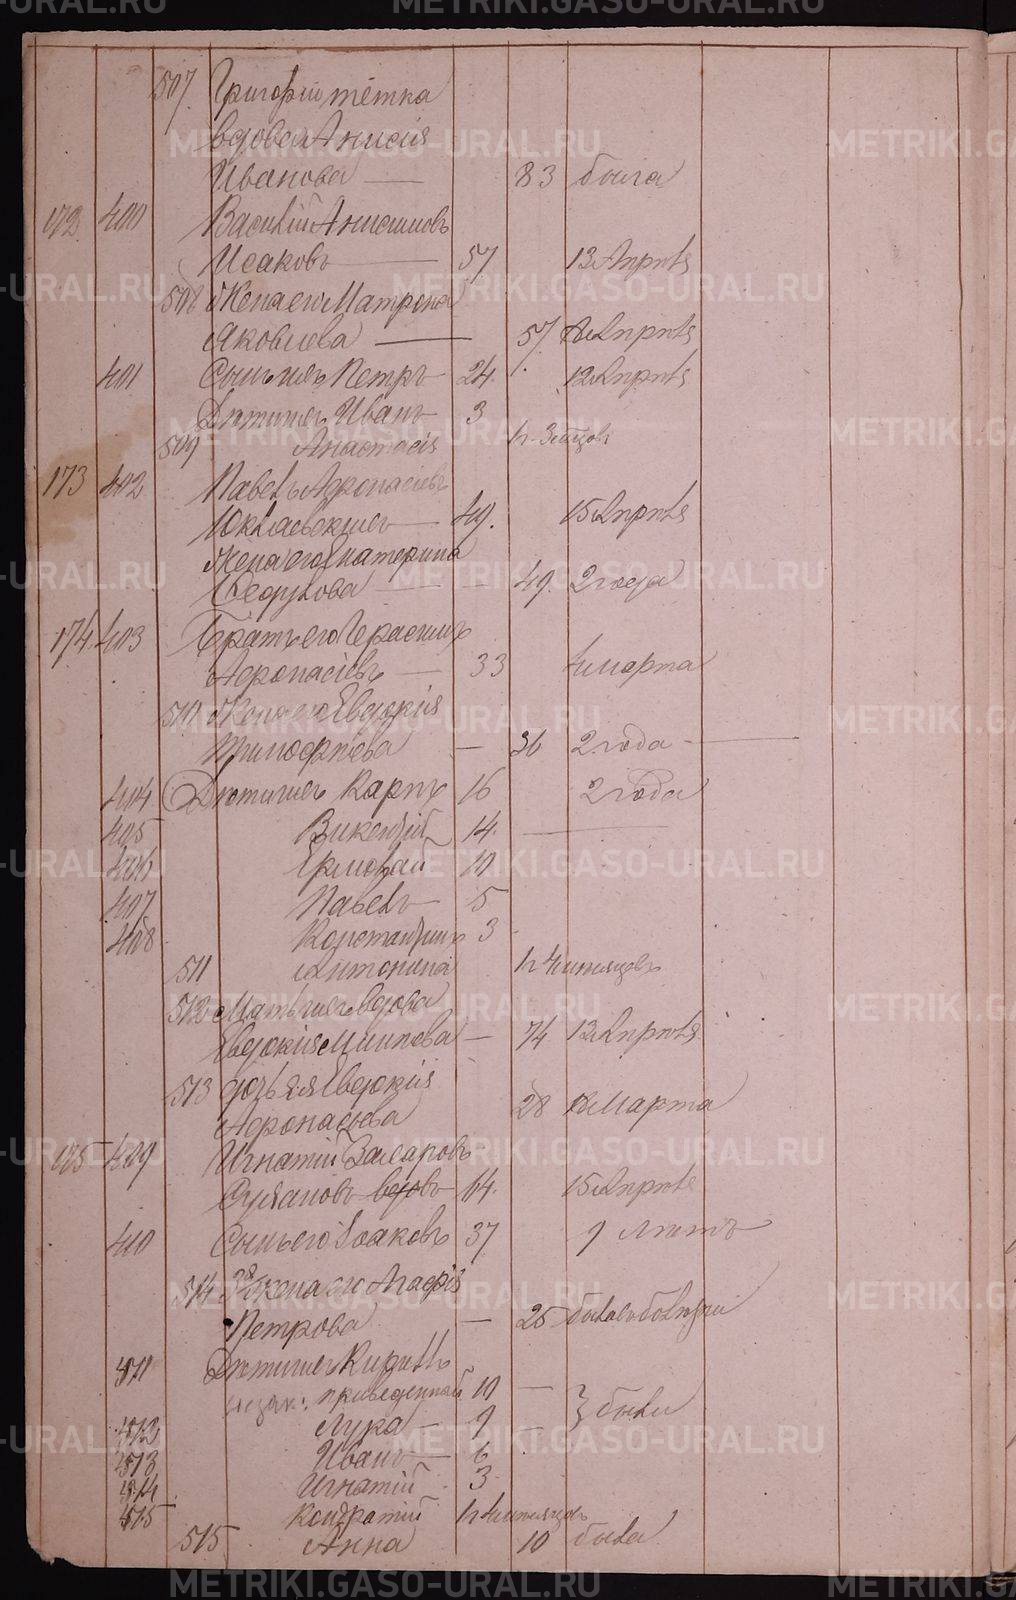 507 Григорій тётка
вдова Анисія
Иванова — 83 была
172 400 Василій Анисимовъ
Исаковъ — 57 13 Апрѣля
508 Жена его Матрона
Яковлева — 57 Апрѣля
401 Сынъ ихъ Петръ 24 12 Апрѣля
Дѣти ихъ Иванъ 3
509 Анастасія
173 402 Павелъ Афонасіевъ
49. 15 Апрѣля
Жена его Екатерина
Федулова — 49. 2 года
174. 403 Братъ его Герасимъ
Афонасіевъ — 33 Марта
510 Жена его Евдокія
Тимофѣева — 36 2 года —
404 Дѣти ихъ Карпъ 16 2 года
405 Викентій 14.
406 Ермолай 10
407 Павелъ 5
408 Константинъ 3
511 Антонина
512 Мать ихъ вдова
Евдокія — 74 13 Апрѣля
513 Евдокія
Афонасьева 28 Марта
175 409 Игнатій Захаровъ
вдовъ 64. 15 Апрѣля
410 Сынъ его Іоаковъ 37 9 лѣтъ
514 Жена его Агафія
Петрова — 25
411 Дѣти ихъ Кириллъ
приведенный 10 —
412 Лука — 9 3 были
413 Иванъ — 6
414 Игнатій 3
415 Кондратій
515 Анна 10 была
METRIKI.GASO-URAL.RU